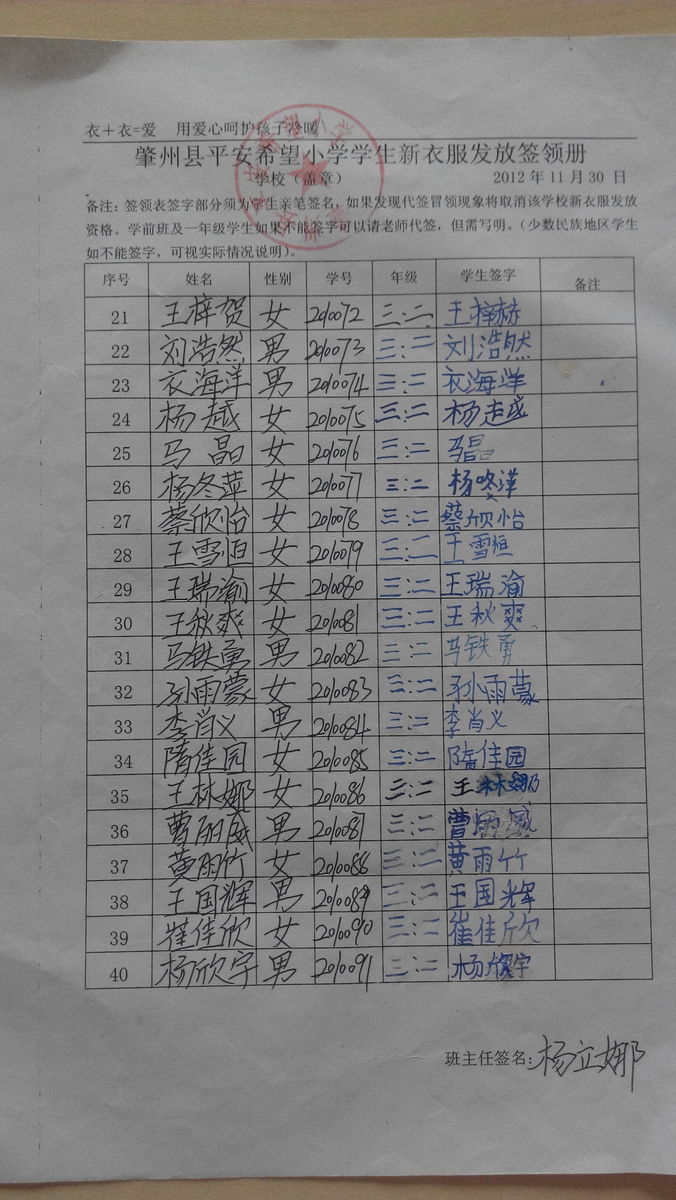 衣+衣=爱 用爱心呵护孩子冷暖
肇州县平安希望小学学生新衣服发放签领册
学校（盖章） 2012年11月30日
备注：签领表签字部分须为学生亲笔签名，如果发现代签冒领现象将取消该学校新衣服发放
资格。学前班及一年级学生如果不能签字可以请老师代签，但需写明。（少数民族地区学生
如不能签字，可视实际情况说明）。
序号 姓名 性别 学号 年级 学生签字 备注
21 王梓贺 女 2010072 三:二 王梓赫
22 刘浩然 男 2010073 三:二 刘浩然
23 衣海洋 男 2010074 三:二 衣海洋
24 杨越 女 2010075 三:二 杨越
25 马晶 女 2010076 三:二 马晶
26 杨冬萍 女 2010077 三:二 杨咚萍
27 蔡欣怡 女 2010078 三:二 蔡欣怡
28 王雪恒 女 2010079 三:二 王雪恒
29 王瑞渝 女 2010080 三:二 王瑞渝
30 王秋爽 女 2010081 三:二 王秋爽
31 马铁勇 男 2010082 三:二 马铁勇
32 孙雨蒙 女 2010083 三:二 孙雨蒙
33 李肖义 男 2010084 三:二 李肖义
34 隋佳园 女 2010085 三:二 隋佳园
35 王林娜 女 2010086 三:二 王林娜
36 曹丽威 男 2010087 三:二 曹丽威
37 黄雨竹 女 2010088 三:二 黄雨竹
38 王国辉 男 2010089 三:二 王国辉
39 崔佳欣 女 2010090 三:二 崔佳欣
40 杨欣宇 男 2010091 三:二 杨欣宇
班主任签名:杨立娜